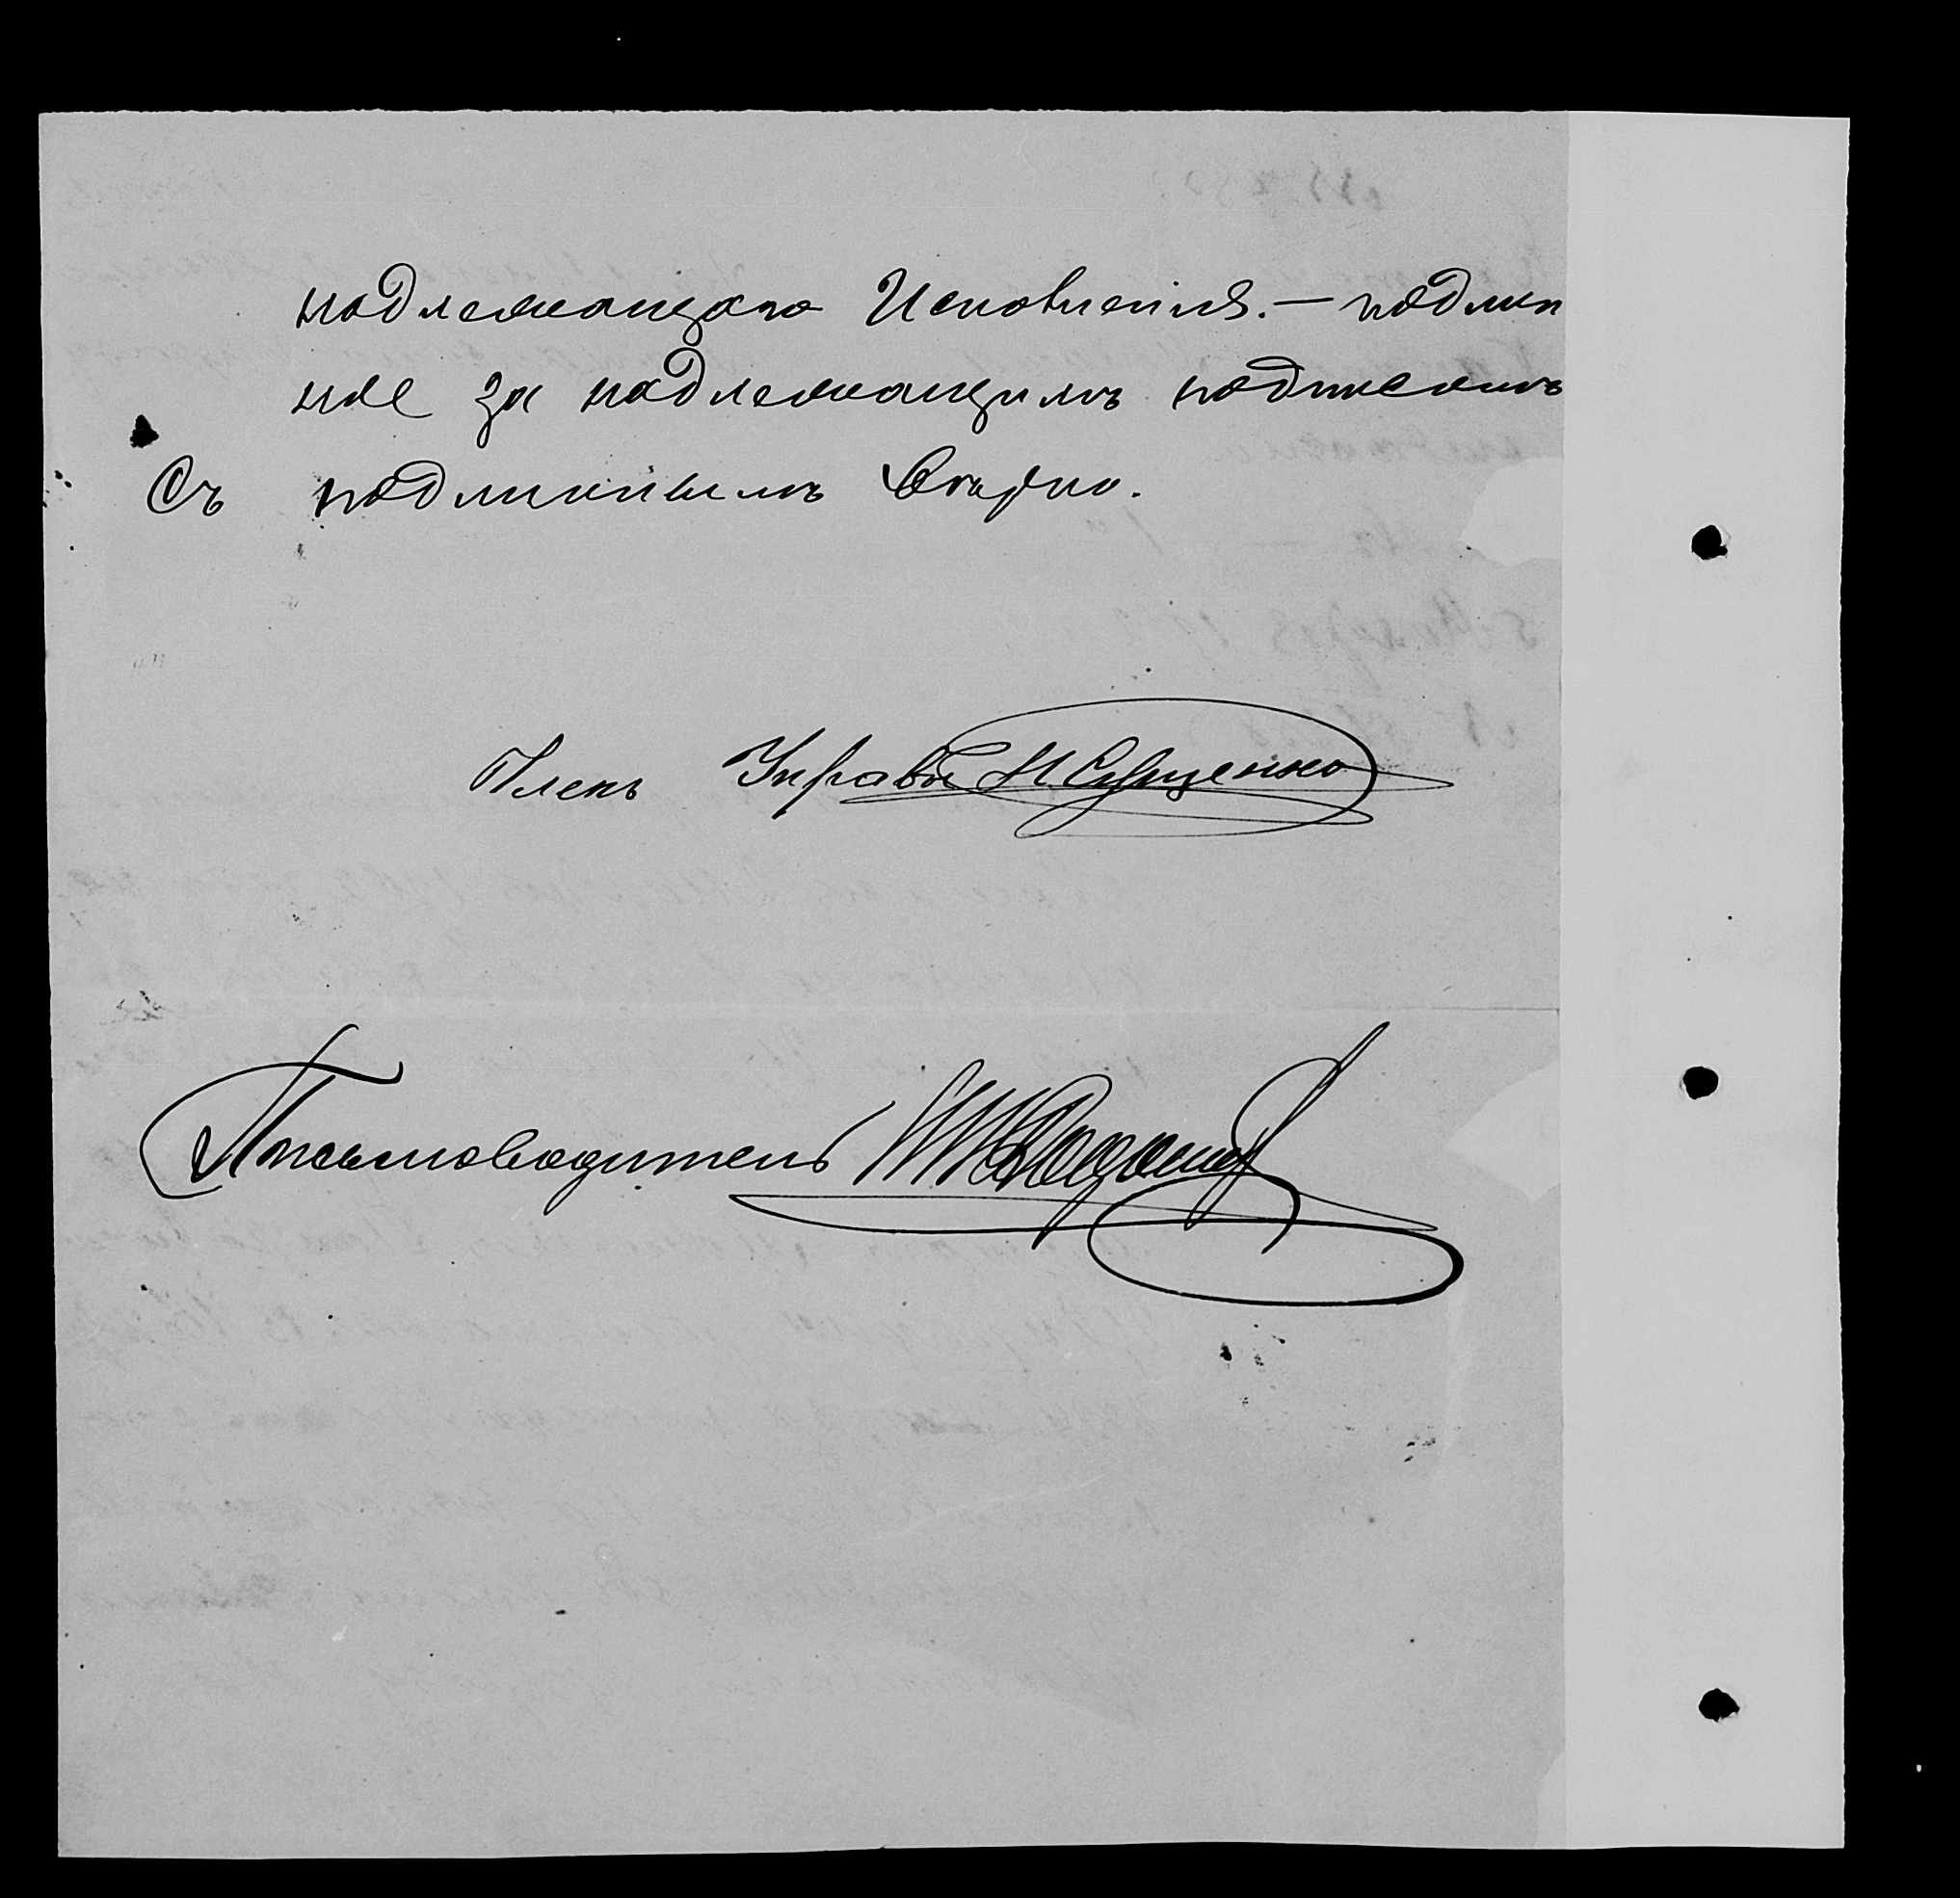 надлежащаго Исполненія. — подлин
ное за надлежащимъ подписомъ
Съ подлиннымъ вѣрно.
Членъ Управы И. Сущенко
Письмоводитель